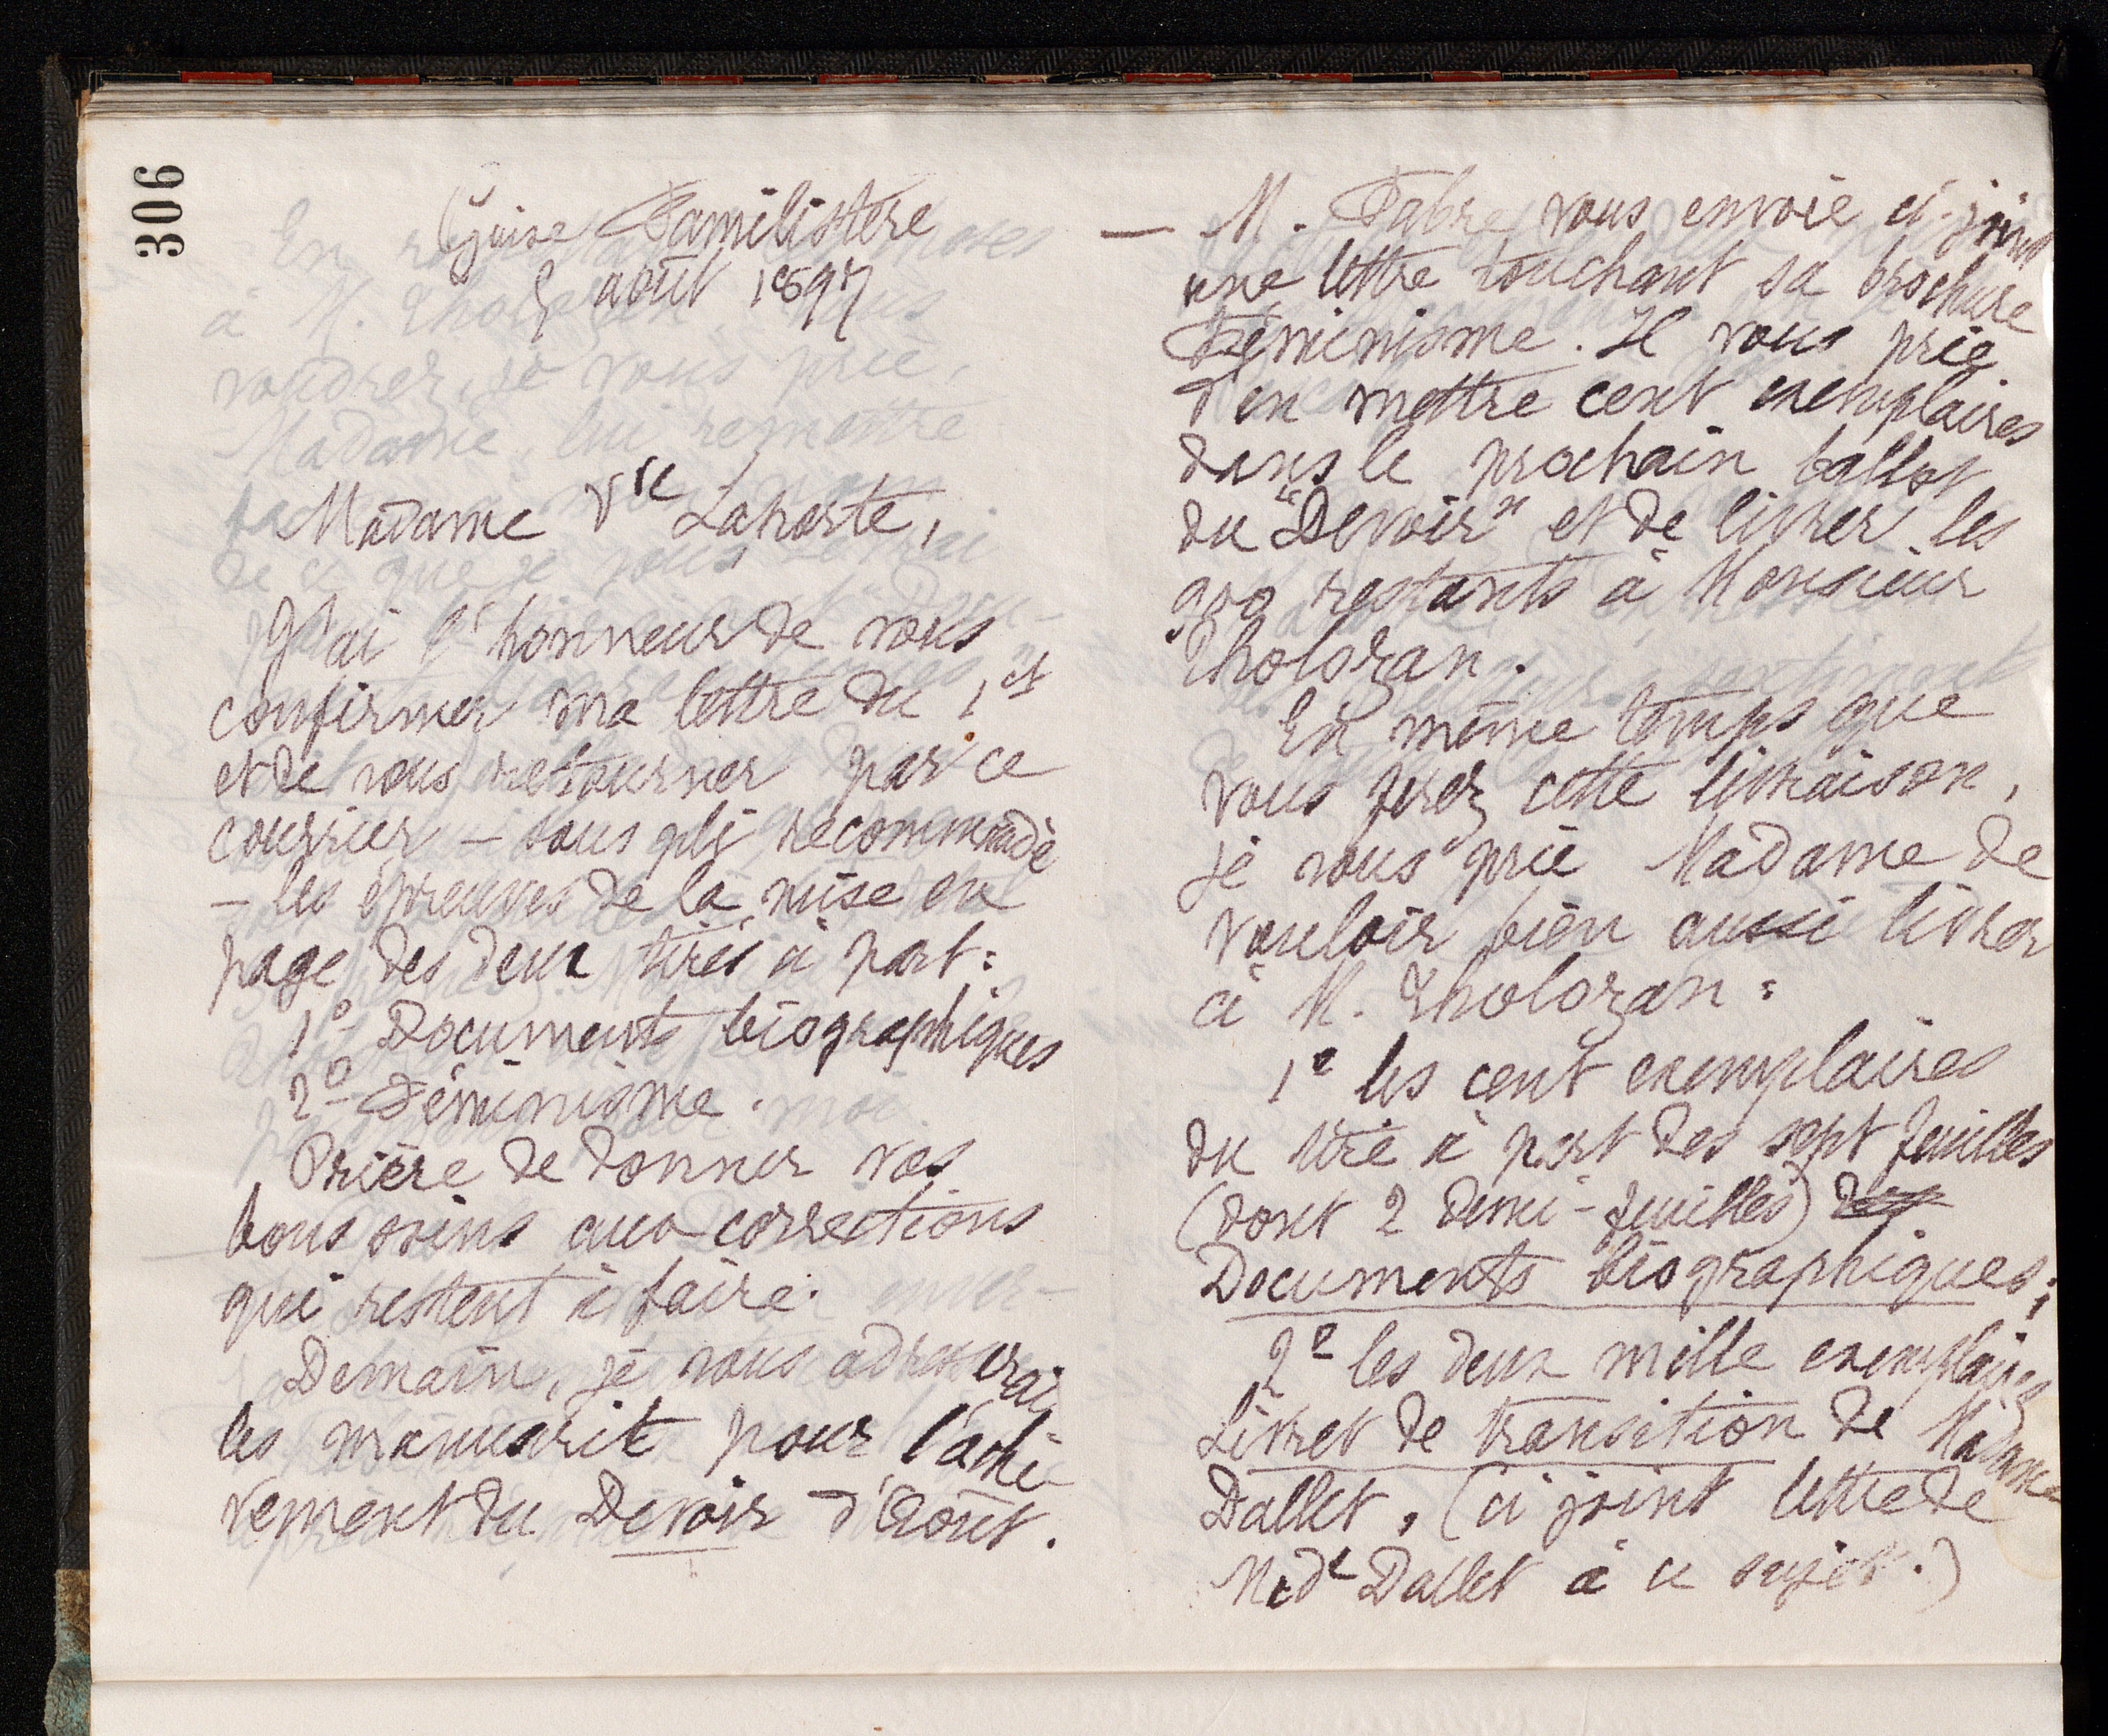 306
Guise Familistère
5 août 1897
Madame Vve Laporte,
J'ai l'honneur de vous
confirmer ma lettre du 1er
et de vous retourner par ce
courrier – sous pli recommandé
– les épreuves de la mise en
page des deux tirés à part :
1° Documents biographiques
2° Féminisme.
Prière de donner vos
bons soins aux corrections
qui restent à faire.
Demain, je vous adresserai
les manuscrits pour l'achè-
vement du Devoir d'Août.
— M. Fabre vous envoie ci-joint
une lettre touchant sa brochure
Féminisme. Il vous prie
d'en mettre cent exemplaires
dans le prochain ballot
du "Devoir" et de livrer les
900 restants à Monsieur
Tholozan.
En même temps que
vous ferez cette livraison,
je vous prie Madame de
vouloir bien aussi livrer
à M. Tholozan :
1° les cent exemplaires
du tiré à part des sept feuilles
(dont 2 demi-feuilles) des
Documents biographiques ;
2° les deux mille exemplaires
Livret de transition de Madame
Dallet, (ci joint lettre de
Made Dallet à ce sujet.)